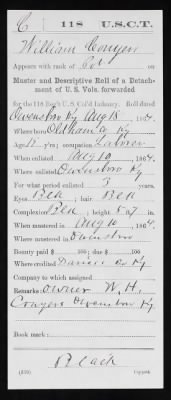 C 118 U.S.C.T.
William Conyers
Appears with rank of Pvt. on
Master and Descriptive Roll of a Detach-
ment of U. S. Vols. forwarded
for the 118 Reg't U.S. Col'd Infantry. Roll dated
Owensboro Ky Aug 18, 1864.
Where born Oldham Co Ky
Age y'rs; occupation Laborer
When enlisted Aug 10, 1864.
Where enlisted Owensboro Ky
For what period enlisted 3 years.
Eyes Blk; hair Blk
Complexion Blk; height 5 ft. in.
When mustered in Aug 10, 1864.
Where mustered in Owensboro
Bounty paid $ 100; due $ 100
Where credited Daviess Co Ky
Company to which assigned
Remarks: Owner W. H.
Conyers Owensboro Ky
Book mark:
Black
(339) Copyist.